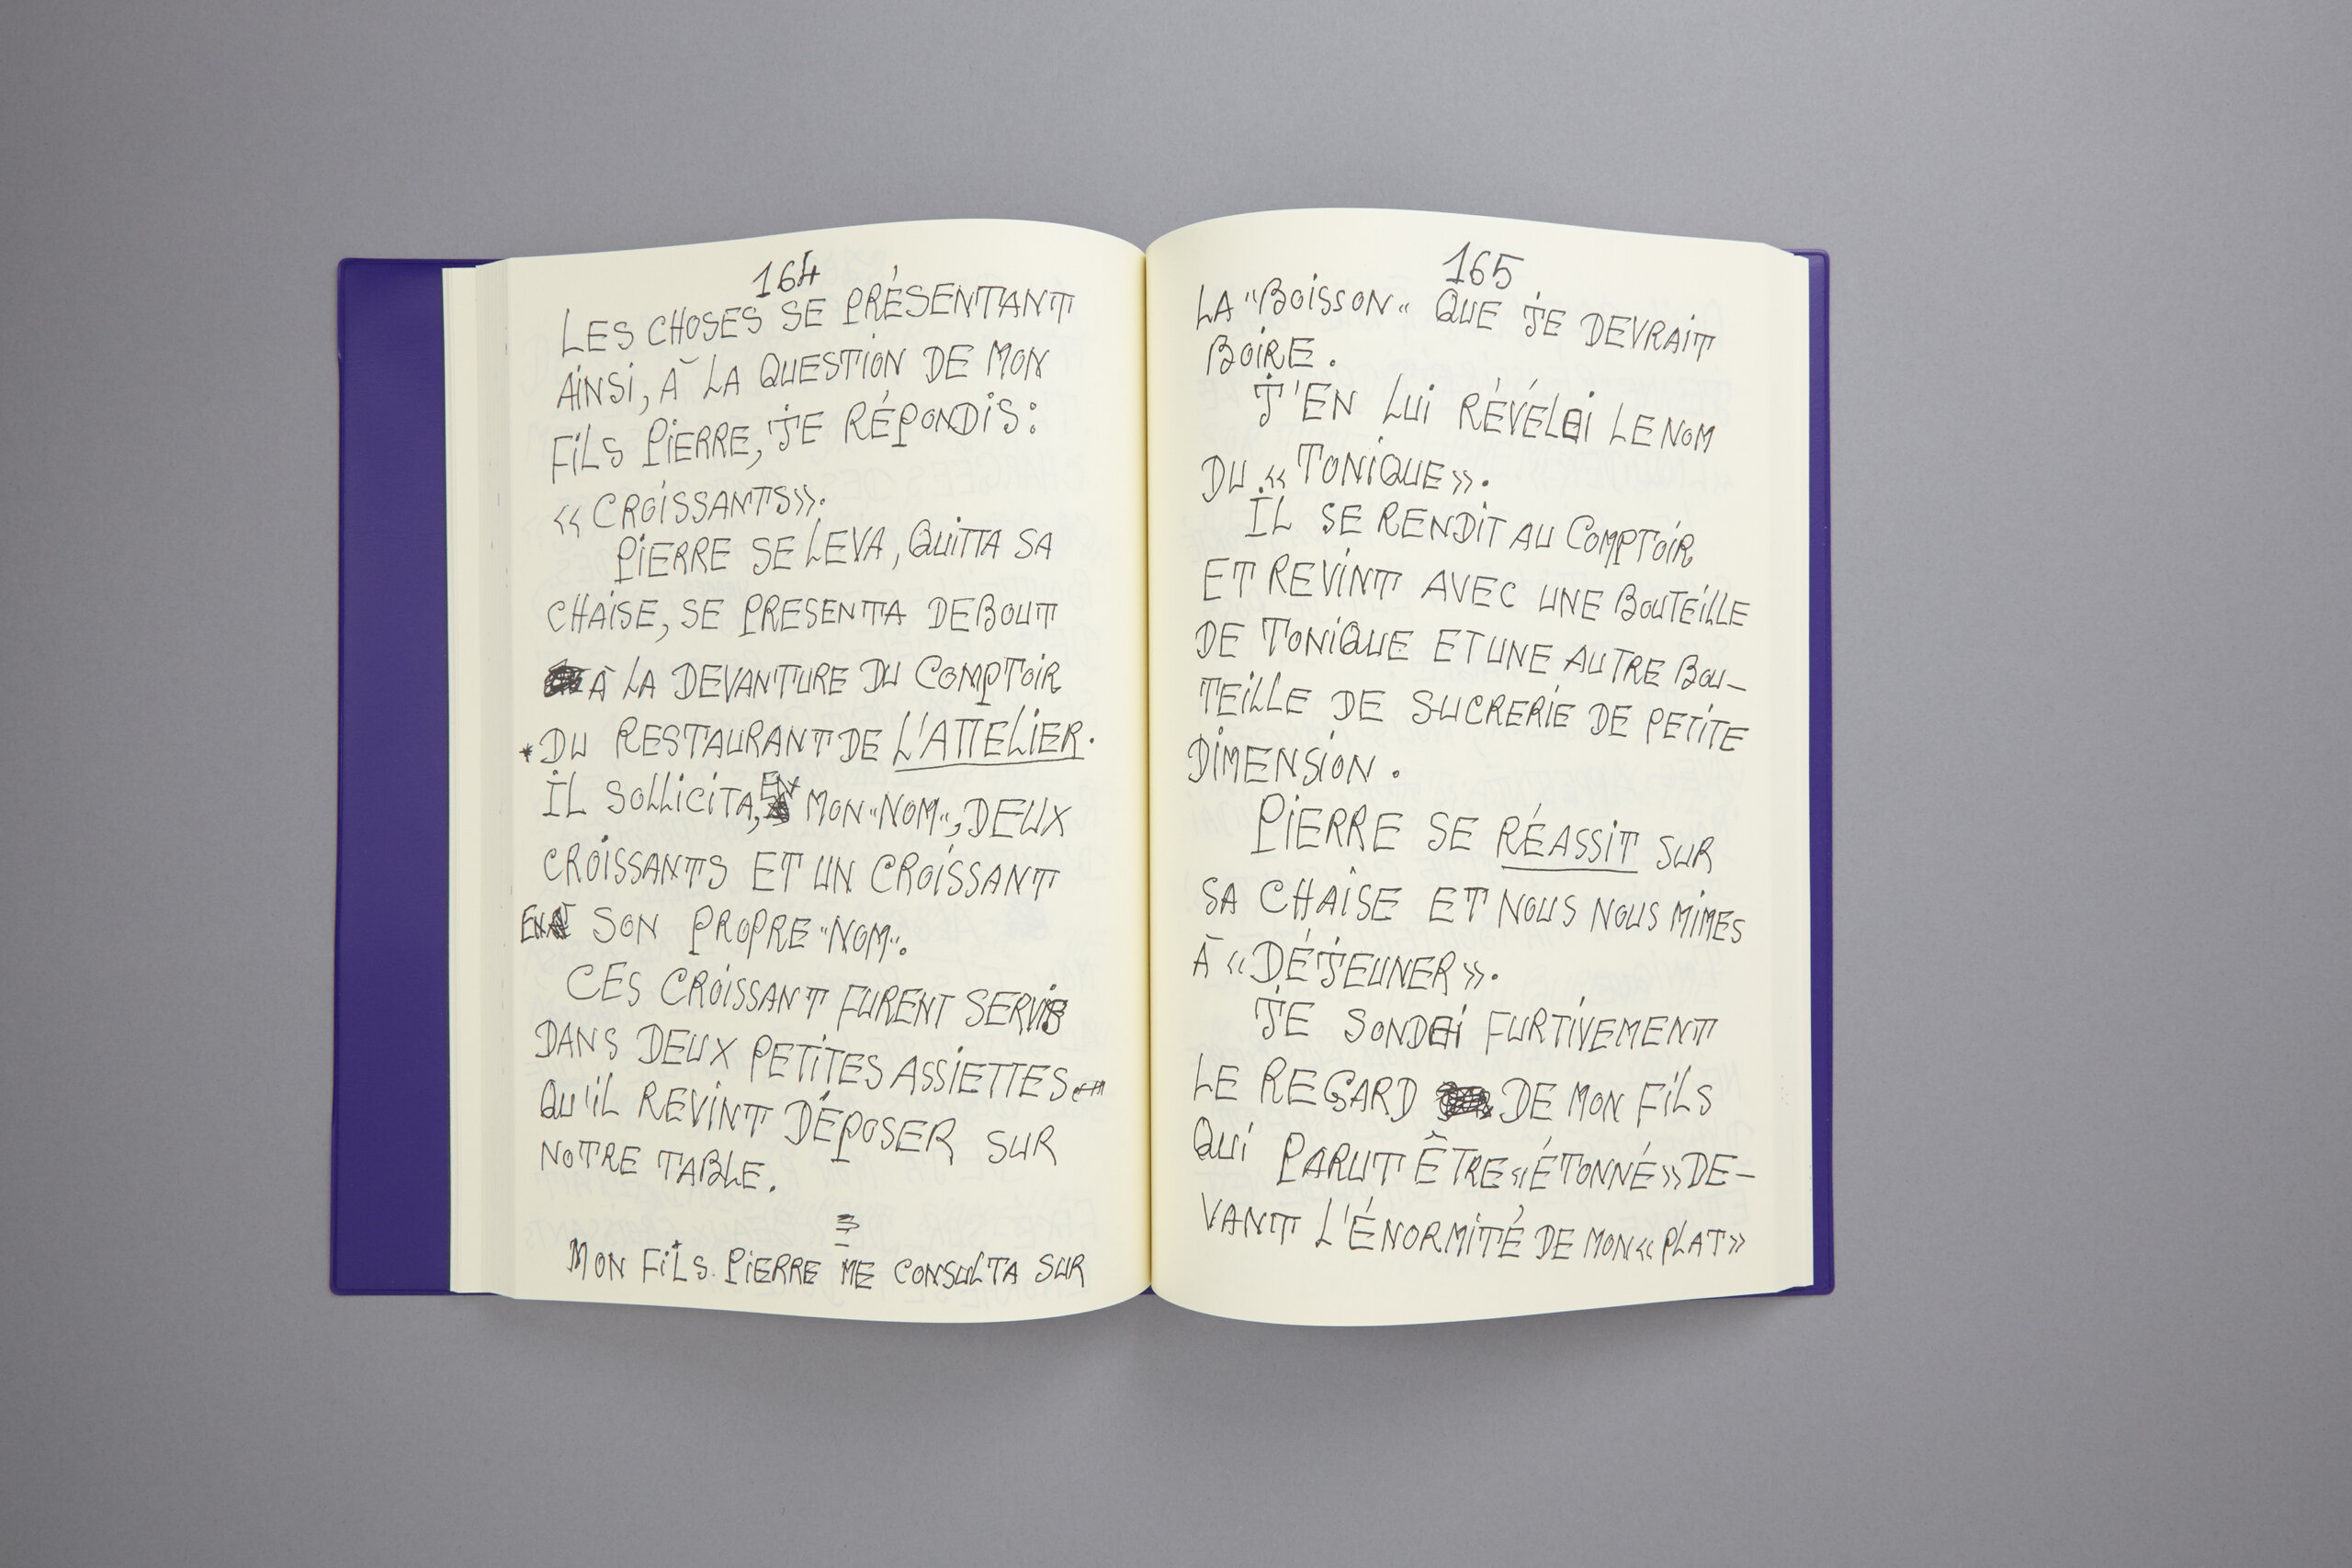 164
LES CHOSES SE PRÉSENTANT
AINSI, À LA QUESTION DE MON
FILS PIERRE, JE RÉPONDIS:
«CROISSANTS».
PIERRE SE LEVA, QUITTA SA
CHAISE, SE PRESENTA DEBOUT
À LA DEVANTURE DU COMPTOIR
*DU RESTAURANT DE L'ATTELIER.
IL SOLLICITA, EN MON "NOM", DEUX
CROISSANTS ET UN CROISSANT
EN SON PROPRE "NOM".
CES CROISSANT FURENT SERVIS
DANS DEUX PETITES ASSIETTES
QU'IL REVINT DÉPOSER SUR
NOTRE TABLE.
MON FILS PIERRE ME CONSULTA SUR
165
LA "BOISSON" QUE JE DEVRAIT
BOIRE.
J'EN LUI RÉVÉLAI LE NOM
DU «TONIQUE».
IL SE RENDIT AU COMPTOIR
ET REVINT AVEC UNE BOUTEILLE
DE TONIQUE ET UNE AUTRE BOU-
TEILLE DE SUCRERIE DE PETITE
DIMENSION.
PIERRE SE RÉASSIT SUR
SA CHAISE ET NOUS NOUS MIMES
À «DÉJEUNER».
JE SONDAI FURTIVEMENT
LE REGARD DE MON FILS
QUI PARUT ÊTRE «ÉTONNÉ» DE-
VANT L'ÉNORMITÉ DE MON «PLAT»